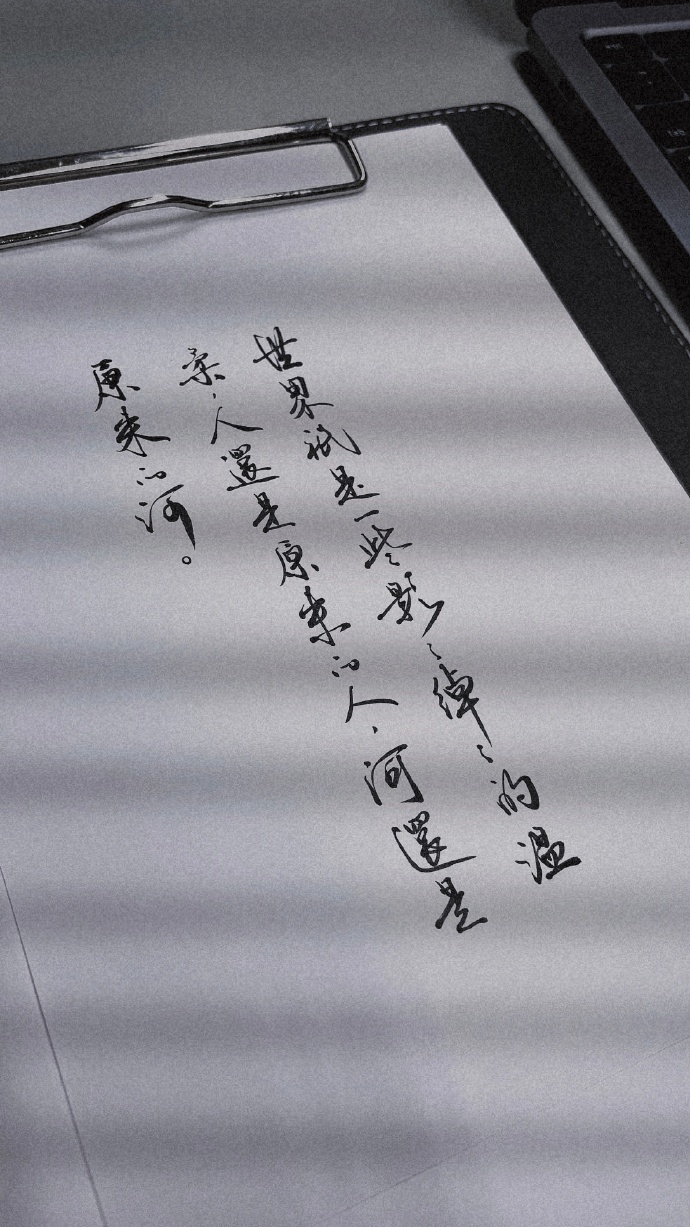 世界祇是一些影影綽綽的溫
柔,人還是原來的人,河還是
原來的河。
tab